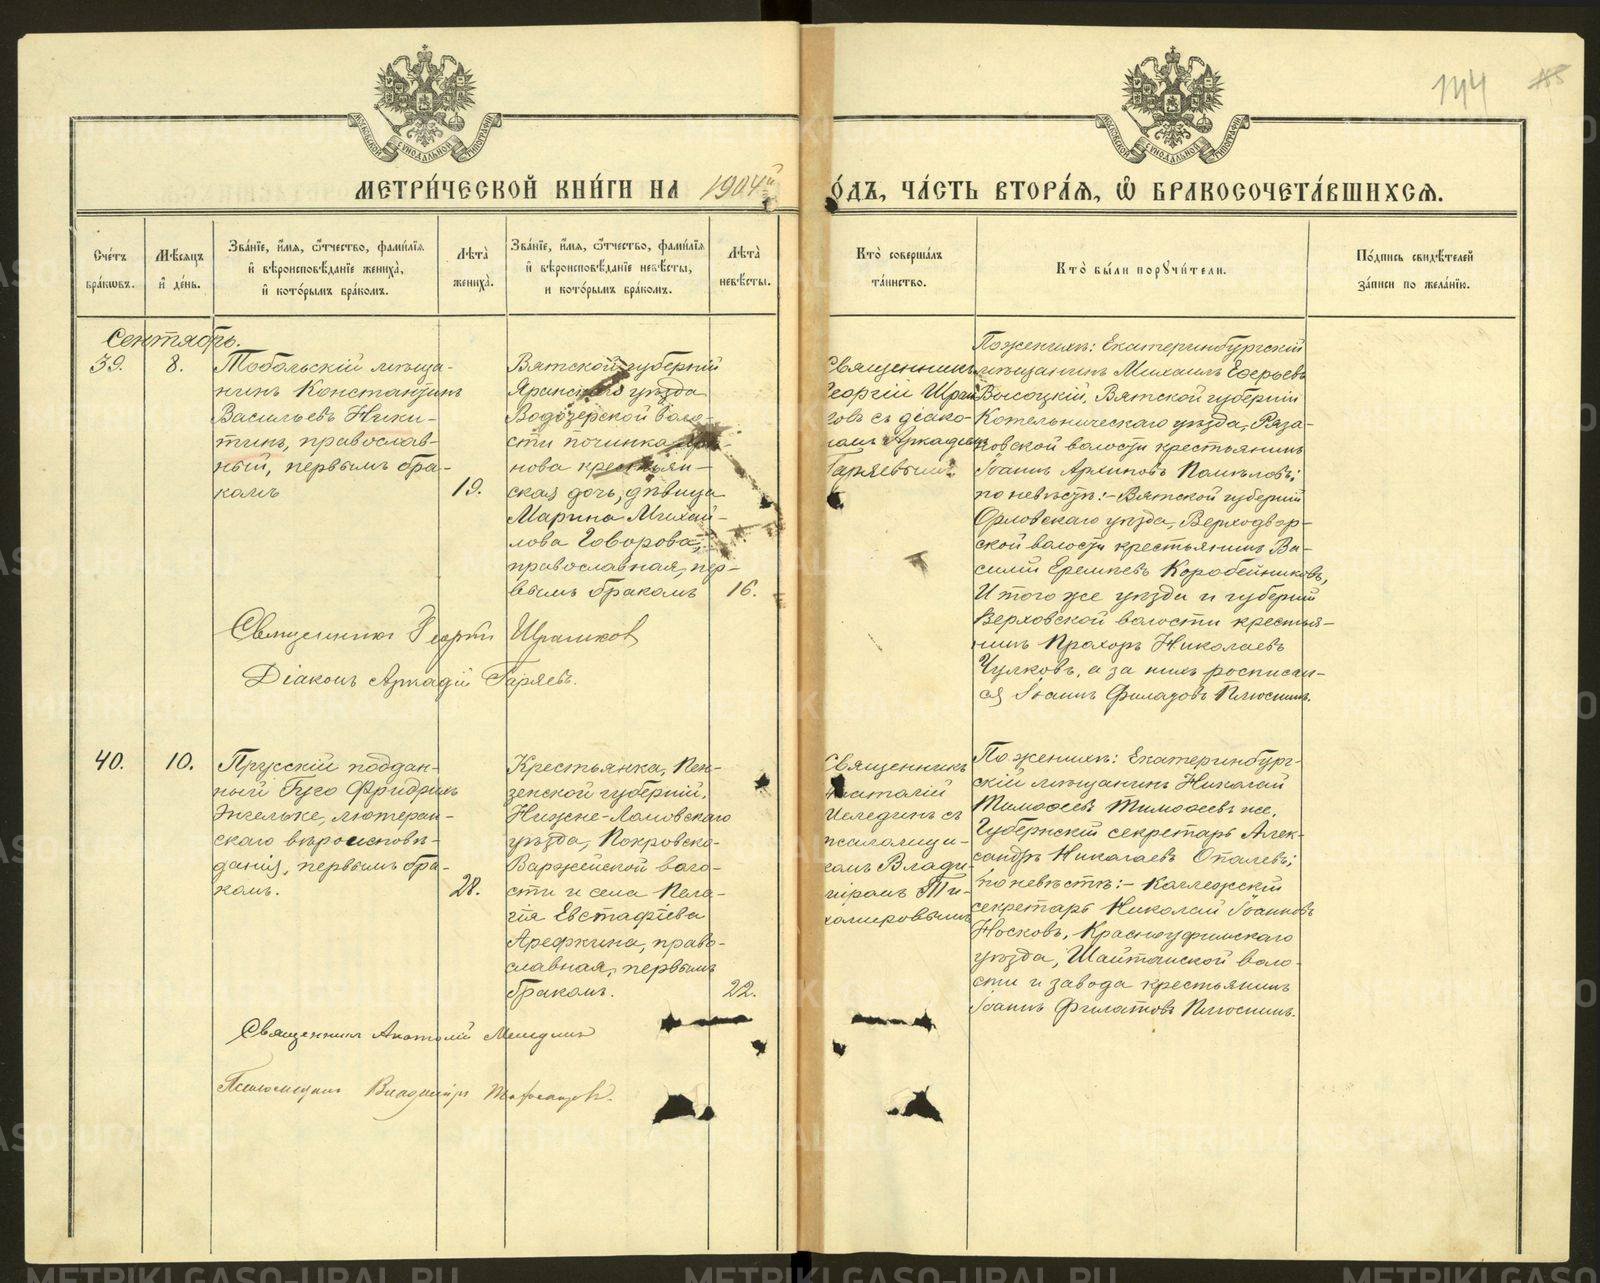 144
МОСКОВСКОЙ СУНОДАЛЬНОЙ ТИПОГРАФІИ
МОСКОВСКОЙ СУНОДАЛЬНОЙ ТИПОГРАФІИ
МЕТРИ́ЧЕСКОЙ КНИ́ГИ НА 1904й
О́ДЪ, ЧА́СТЬ ВТОРА́Я, Ѽ БРАКОСОЧЕТА́ВШИХСЯ.
Сче́тъ бра́ковъ.
Мѣ́сяцъ и҆ де́нь.
Зва́нїе, и҆́мя, ѻ҆́тчество, фами́лїя и҆ вѣроисповѣ́данїе жениха̀, и҆ кото́рымъ бра́комъ.
Лѣта̀ жениха̀.
Зва́нїе, и҆́мя, ѻ҆́тчество, фами́лїя и҆ вѣроисповѣ́данїе невѣ́сты, и кото́рымъ бра́комъ.
Лѣта̀ невѣ́сты.
Кто̀ соверша́лъ та́инство.
Кто̀ бы́ли порꙋчи́тели.
По́дпись свидѣ́телей за́писи по жела́нїю.
Сентябрь.
39.
8.
Тобольскій мѣща-
нинъ Константинъ
Васильевъ Ники-
тинъ, православ-
ный, первымъ бра-
комъ
19.
Вятской губерніи
Яранскаго уѣзда
Водозерской воло-
сти починка
нова крестьян-
ская дочь, дѣвица
Марина Михай-
лова Говорова,
православная, пер-
вымъ бракомъ
16.
Священникъ
Георгій
ковъ съ діако-
номъ Аркадіемъ
Гаряевымъ.
По женихѣ: Екатеринбургскій
мѣщанинъ Михаилъ
Высоцкій, Вятской губерніи
Котельническаго уѣзда,
новской волости крестьянинъ
Іоаннъ Архиповъ
по невѣстѣ:- Вятской губерніи
Орловскаго уѣзда, Верходвор-
ской волости крестьянинъ Ва-
силій Еремѣевъ Коробейниковъ,
И того же уѣзда и губерніи
Верховской волости крестья-
нинъ Прохоръ Николаевъ
Чулковъ, а за нихъ росписал-
ся Іоаннъ Филатовъ Плюснинъ.
Священникъ Георгій
Діаконъ Аркадій Гаряевъ.
40.
10.
Прусскій поддан-
ный Гуго Фридрихъ
Энгельке, лютеран-
скаго вѣроисповѣ-
данія, первымъ бра-
комъ.
28.
Крестьянка, Пен-
зенской губерніи,
Нижне-Ломовскаго
уѣзда, Покровско-
Варжейской воло-
сти и села Пела-
гія Евстафіева
Арефкина, право-
славная, первымъ
бракомъ.
22.
Священникъ
Анатолій
Мелединъ съ
псаломщи-
комъ Влади-
міромъ Ти-
хомировымъ
По женихѣ: Екатеринбург-
скій мѣщанинъ Николай
Тимофеевъ Тимофеевъ же,
Губернскій секретарь Алек-
сандръ Николаевъ Опалевъ;
по невѣстѣ:- Коллежскій
секретарь Николай Іоанновъ
Носковъ, Красноуфимскаго
уѣзда, Шайтанской воло-
сти и завода крестьянинъ
Іоаннъ Филатовъ Плюснинъ.
Священникъ Анатолій Меледин
Псаломщикъ Владиміръ Тихомировъ.
METRIKI.GASO-URAL.RU